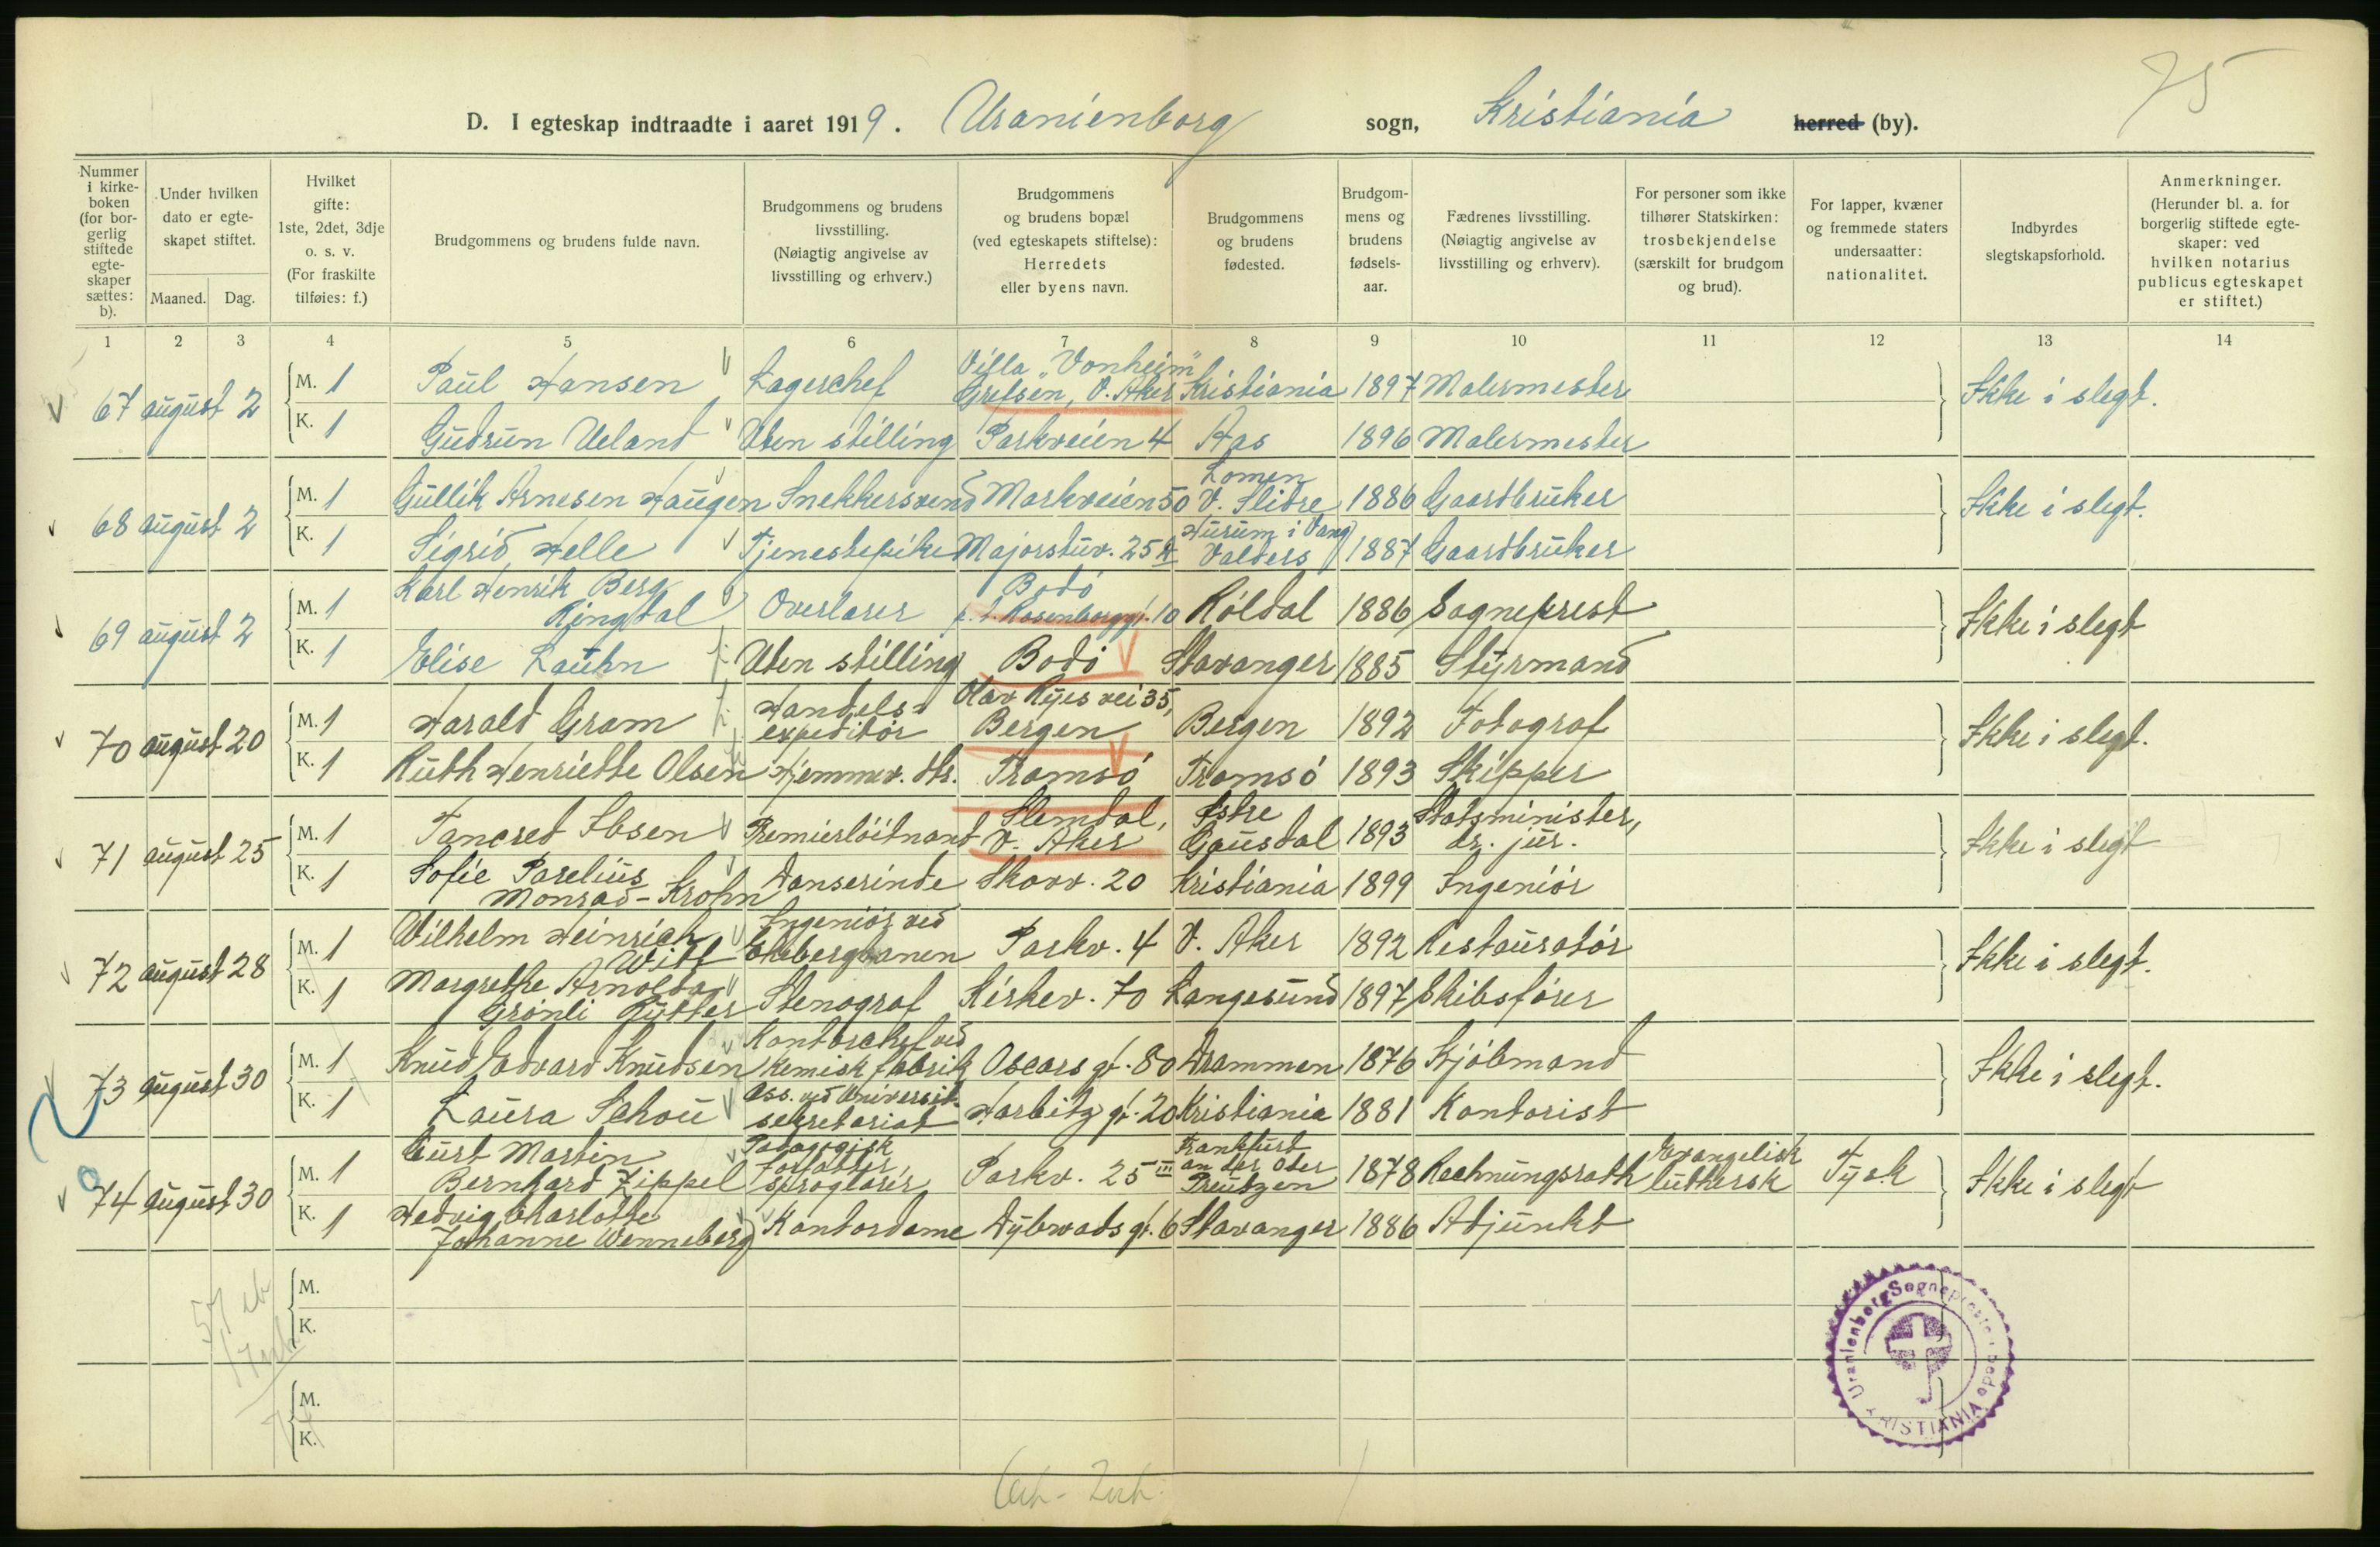 75
D. I egteskap indtraadte i aaret 1919. Uranienborg sogn, Kristiania herred (by).
Nummer i kirke-boken (for bor-gerlig stiftede egte-skaper sættes: b).
Under hvilken dato er egte-skapet stiftet.
Maaned. Dag.
Hvilket gifte: 1ste, 2det, 3dje o. s. v. (For fraskilte tilføies: f.)
Brudgommens og brudens fulde navn.
Brudgommens og brudens livsstilling. (Nøiagtig angivelse av livsstilling og erhverv.)
Brudgommens og brudens bopæl (ved egteskapets stiftelse): Herredets eller byens navn.
Brudgommens og brudens fødested.
Brudgom-mens og brudens fødsels-aar.
Fædrenes livsstilling. (Nøiagtig angivelse av livsstilling og erhverv).
For personer som ikke tilhører Statskirken: trosbekjendelse (særskilt for brudgom og brud).
For lapper, kvæner og fremmede staters undersaatter: nationalitet.
Indbyrdes slegtskapsforhold.
Anmerkninger. (Herunder bl. a. for borgerlig stiftede egte-skaper: ved hvilken notarius publicus egteskapet er stiftet.)
1 2 3 4 5 6 7 8 9 10 11 12 13 14
67 august 2 M. 1 Paul Hansen Lagerchef Villa "Vonheim" Grefsen, V. Aker Kristiania 1897 Malermester Ikke i slegt.
K. 1 Gudrun Ueland Uten stilling Parkveien 4 Aas 1896 Malermester
68 august 2 M. 1 Gullik Arnesen Haugen Snekkersvend Markveien 50 Lomen V. Slidre 1886 Gaardbruker Ikke i slegt.
K. 1 Sigrid Helle Tjenestepike Majorstuv. 25 Hurum i Vang Valders 1887 Gaardbruker
69 august 2 M. 1 Karl Henrik Berg Ringdal Overlærer Bodö p. t. Rosenborggt. 10 Röldal 1886 Sogneprest Ikke i slegt
K. 1 Elise Lauhn Uten stilling Bodö Stavanger 1885 Styrmand
70 august 20 M. 1 Harald Gram Handels-expeditör Olav Ryes vei 35, Bergen Bergen 1892 Fotograf Ikke i slegt.
K. 1 Ruth Henriette Olsen Hjemmev. dtr. Tromsö Tromsö 1893 Skipper
71 august 25 M. 1 Tancred Ibsen Premierlöitnant Slemdal, V. Aker Östre Gausdal 1893 Statsminister, dr. jur. Ikke i slegt
K. 1 Sofie Parelius Monrad-Krohn Danserinde Skovv. 20 Kristiania 1899 Ingeniör
72 august 28 M. 1 Wilhelm Heinrich Witt Ingeniör ved Ekebergbanen Parkv. 4 V. Aker 1892 Restauratör Ikke i slegt.
K. 1 Margrethe Arnolda Grönli Rytter Stenograf Kirkev. 70 Langesund 1897 Skibsförer
73 august 30 M. 1 Knud Edvard Knudsen Kontorchef ved kemisk fabrik Oscars gt. 80 Drammen 1876 Kjöbmand Ikke i slegt.
K. 1 Laura Schou Ass. ved Universit. sekretariat Harbitz gt. 20 Kristiania 1881 Kontorist
74 august 30 M. 1 Curt Martin Bernhard Zippel Pædagogisk forfatter, sproglærer Parkv. 25 III Frankfurt an der Oder Preutzen 1878 Rechnungsrath Evangelisk luthersk Tysk Ikke i slegt
K. 1 Hedvig Charlotte Johanne Wenneberg Kontordame Dybwads gt. 6 Stavanger 1886 Adjunkt
M.
K.
M.
K.
Uranienborg Sogneprestembede KRISTIANIA